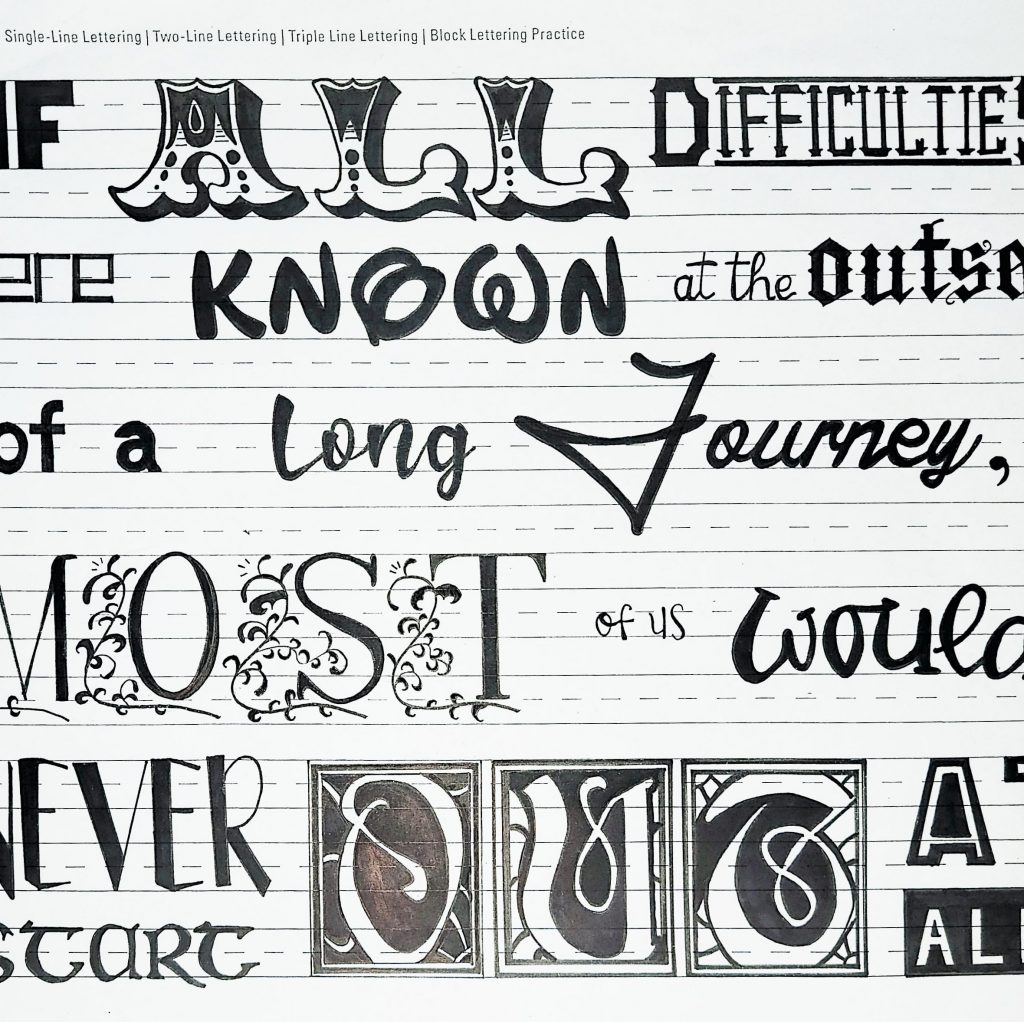 Single-Line Lettering | Two-Line Lettering | Triple Line Lettering | Block Lettering Practice
IF ALL DIFFICULTIES
ere KNOWN at the outse
of a Long Journey,
MOST of us would
NEVER OUT AT
START ALL